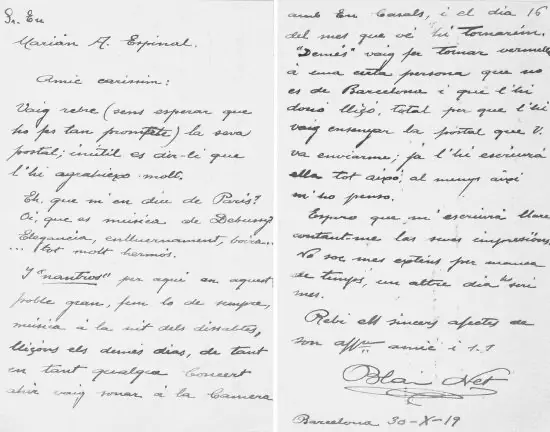 Sr. En
Marián A. Espinal.
Amic caríssim:
Vaig rebre (sens esperar que
ho fes tan promptete) la seva
postal; inútil es dir-li que
l'hi agraheixo molt.
Eh, que m'en diu de París?
Oi, que es música de Debussy?
Elegancia, enlluernament, boira...
... tot molt hermós.
I "nantros" per aquí en aquest
poble gran, fem lo de sempre,
música á la nit dels dissabtes,
lliçons els demés dias, de tant
en tant qualque Concert
ahir vaig sonar á la Camera
amb En Casals, i el dia 16
del mes que vé hi tornarém.
"Demés" vaig fer tornar vermella
á una certa persona que no
es de Barcelona i que l'hi
donó lliçó, total per que l'hi
vaig ensenyar la postal que V.
va enviarme; ja l'hi escriurá
ella tot aixó; al menys aixi
m'ho penso.
Espero que m'escriurá llarg
contant-me las suas impresións.
No soc mes extens per manca
de temps, un altre dia ho seré
mes.
Rebi els sincers afectes de
son affm amic i s.s
Blai Net
Barcelona 30-X-19